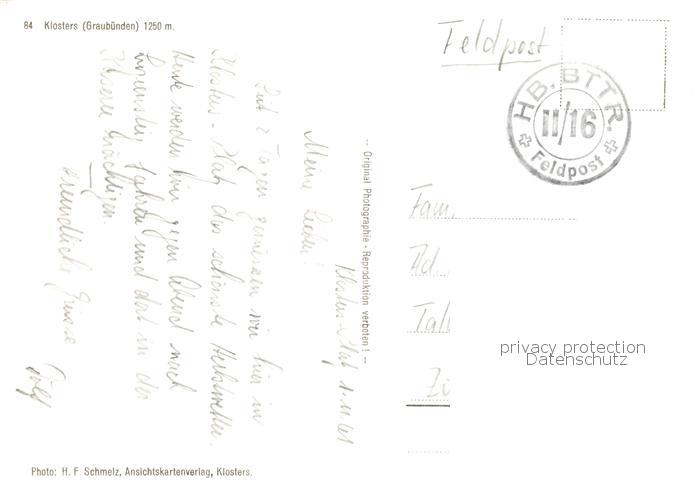 84 Klosters (Graubünden) 1250 m.
Klosters-Platz 1.11.61
Meine Lieben!
Seit 2 Tagen geniessen wir hier in
Klosters-Platz das schönste Herbstwetter.
Heute werden wir gegen Abend nach
fahren und dort in der
Kaserne nächtigen.
Freundliche Grüsse
-- Original Photographie - Reproduktion verboten! --
Feldpost
HB. BTTR.
II/16
Feldpost
Fam.
Ad.
Zü
privacy protection
Datenschutz
Photo: H. F. Schmelz, Ansichtskartenverlag, Klosters.